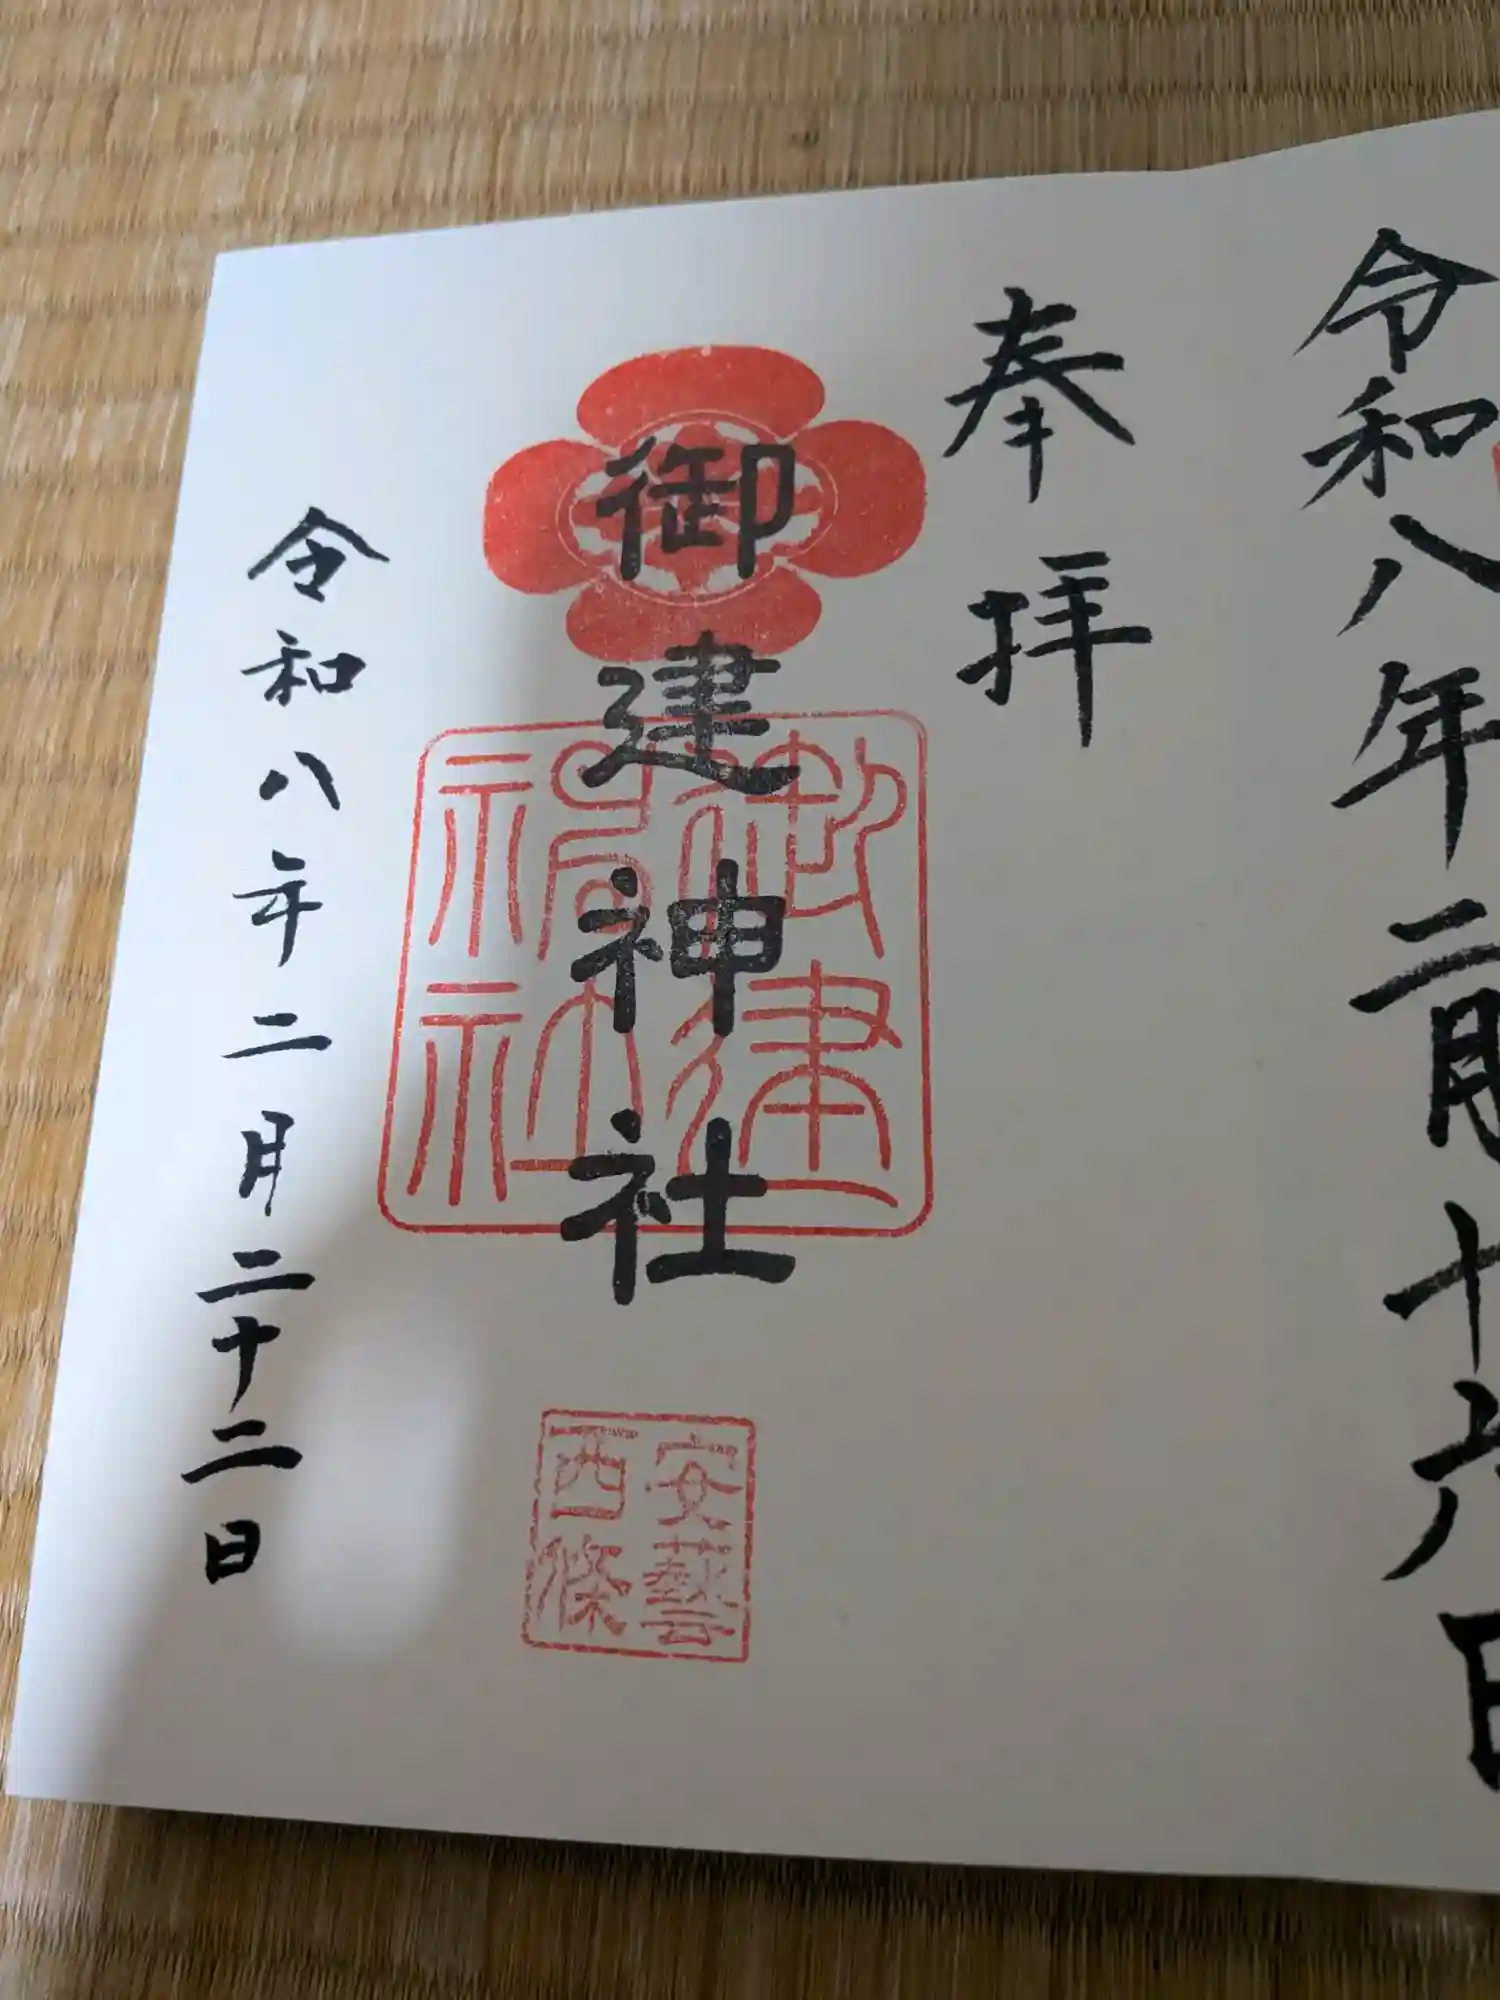 令和八年二月十六日
奉拝
御建神社
御建
神社
安藝
西條
令和八年二月二十二日